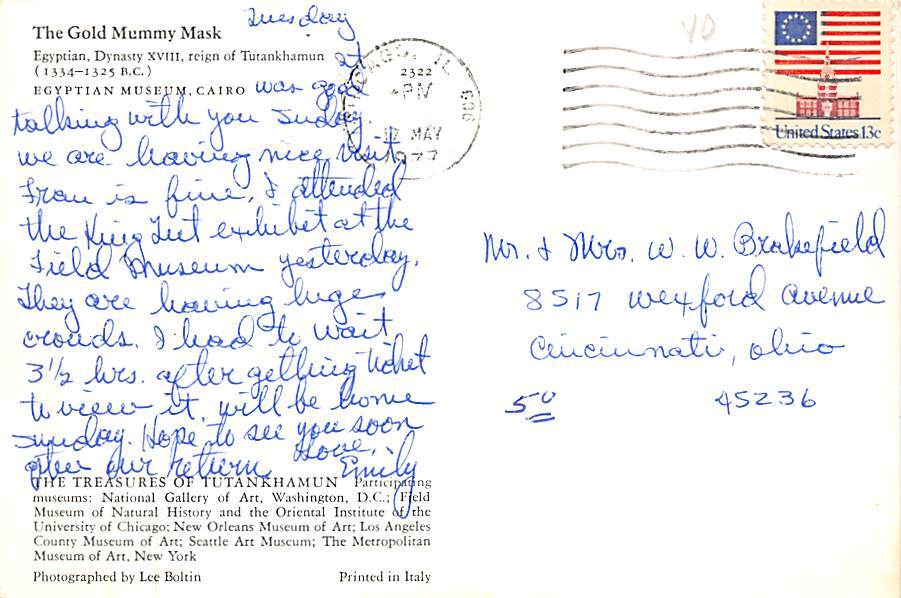 The Gold Mummy Mask
Egyptian, Dynasty XVIII, reign of Tutankhamun
(1334–1325 B.C.)
EGYPTIAN MUSEUM, CAIRO
Tuesday
It
was good
talking with you Sunday.
we are having nice visit.
Fran is fine, I attended
the King Tut exhibit at the
Field Museum yesterday.
They are having huge
crowds. I had to wait
3 1/2 hrs. after getting ticket
to view it. will be home
Sunday. Hope to see you soon
after our return.
Love,
Emily
THE TREASURES OF TUTANKHAMUN Participating
museums: National Gallery of Art, Washington, D.C.; Field
Museum of Natural History and the Oriental Institute of the
University of Chicago; New Orleans Museum of Art; Los Angeles
County Museum of Art; Seattle Art Museum; The Metropolitan
Museum of Art, New York
Photographed by Lee Boltin
Printed in Italy
IL 606
2322
PM
17 MAY
1977
United States 13c
Mr. & Mrs. W. W. Brakefield
8517 Wexford Avenue
Cincinnati, Ohio
45236
50